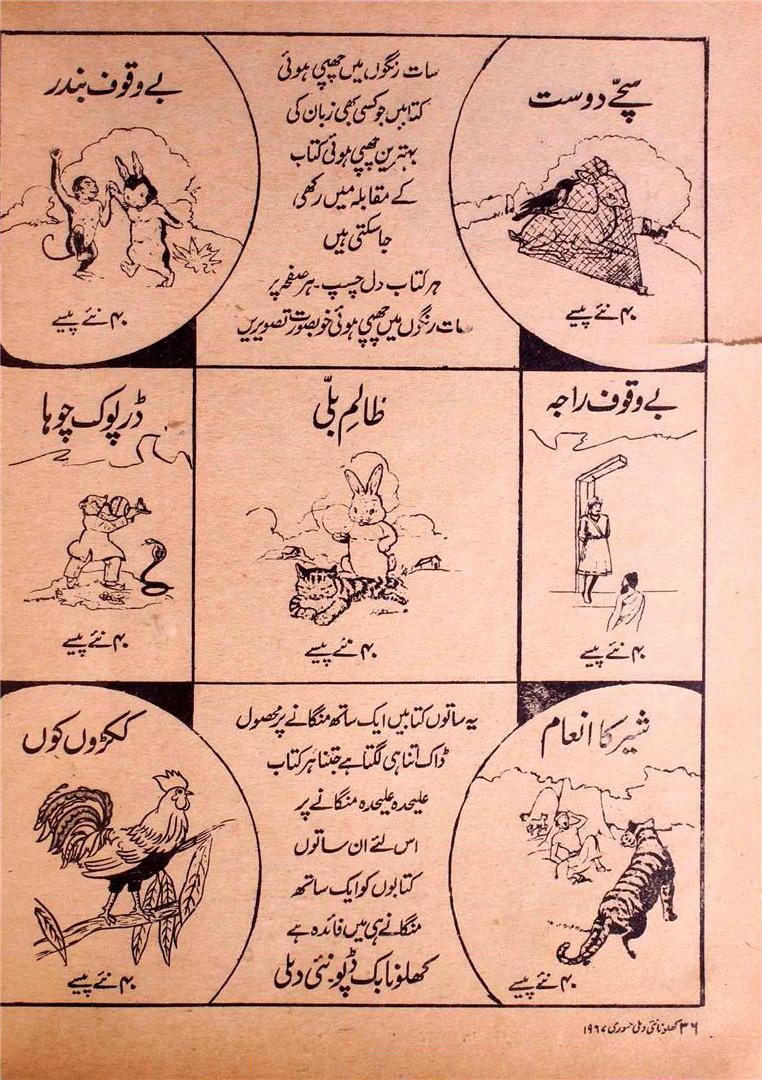 سچّے دوست
۴۰ نئے پیسے
سات رنگوں میں چھپی ہوئی
کتابیں جو کسی بھی زبان کی
بہترین چھپی ہوئی کتاب
کے مقابلہ میں رکھی
جاسکتی ہیں
ہر کتاب دل چسپ۔ ہر صفحہ پر
سات رنگوں میں چھپی ہوئی خوبصورت تصویریں
بے وقوف بندر
۴۰ نئے پیسے
بے وقوف راجہ
۴۰ نئے پیسے
ظالم بلّی
۴۰ نئے پیسے
ڈرپوک چوہا
۴۰ نئے پیسے
شیر کا انعام
۴۰ نئے پیسے
یہ ساتوں کتابیں ایک ساتھ منگانے پر محصول
ڈاک اتنا ہی لگتا ہے جتنا ہر کتاب
علیحدہ علیحدہ منگانے پر
اس لئے ان ساتوں
کتابوں کو ایک ساتھ
منگانے ہی میں فائدہ ہے
کھلونا بک ڈپو۔ نئی دہلی
ککڑوں کوں
۴۰ نئے پیسے
۳۶ کھلونا نئی دہلی جنوری ۱۹۶۷